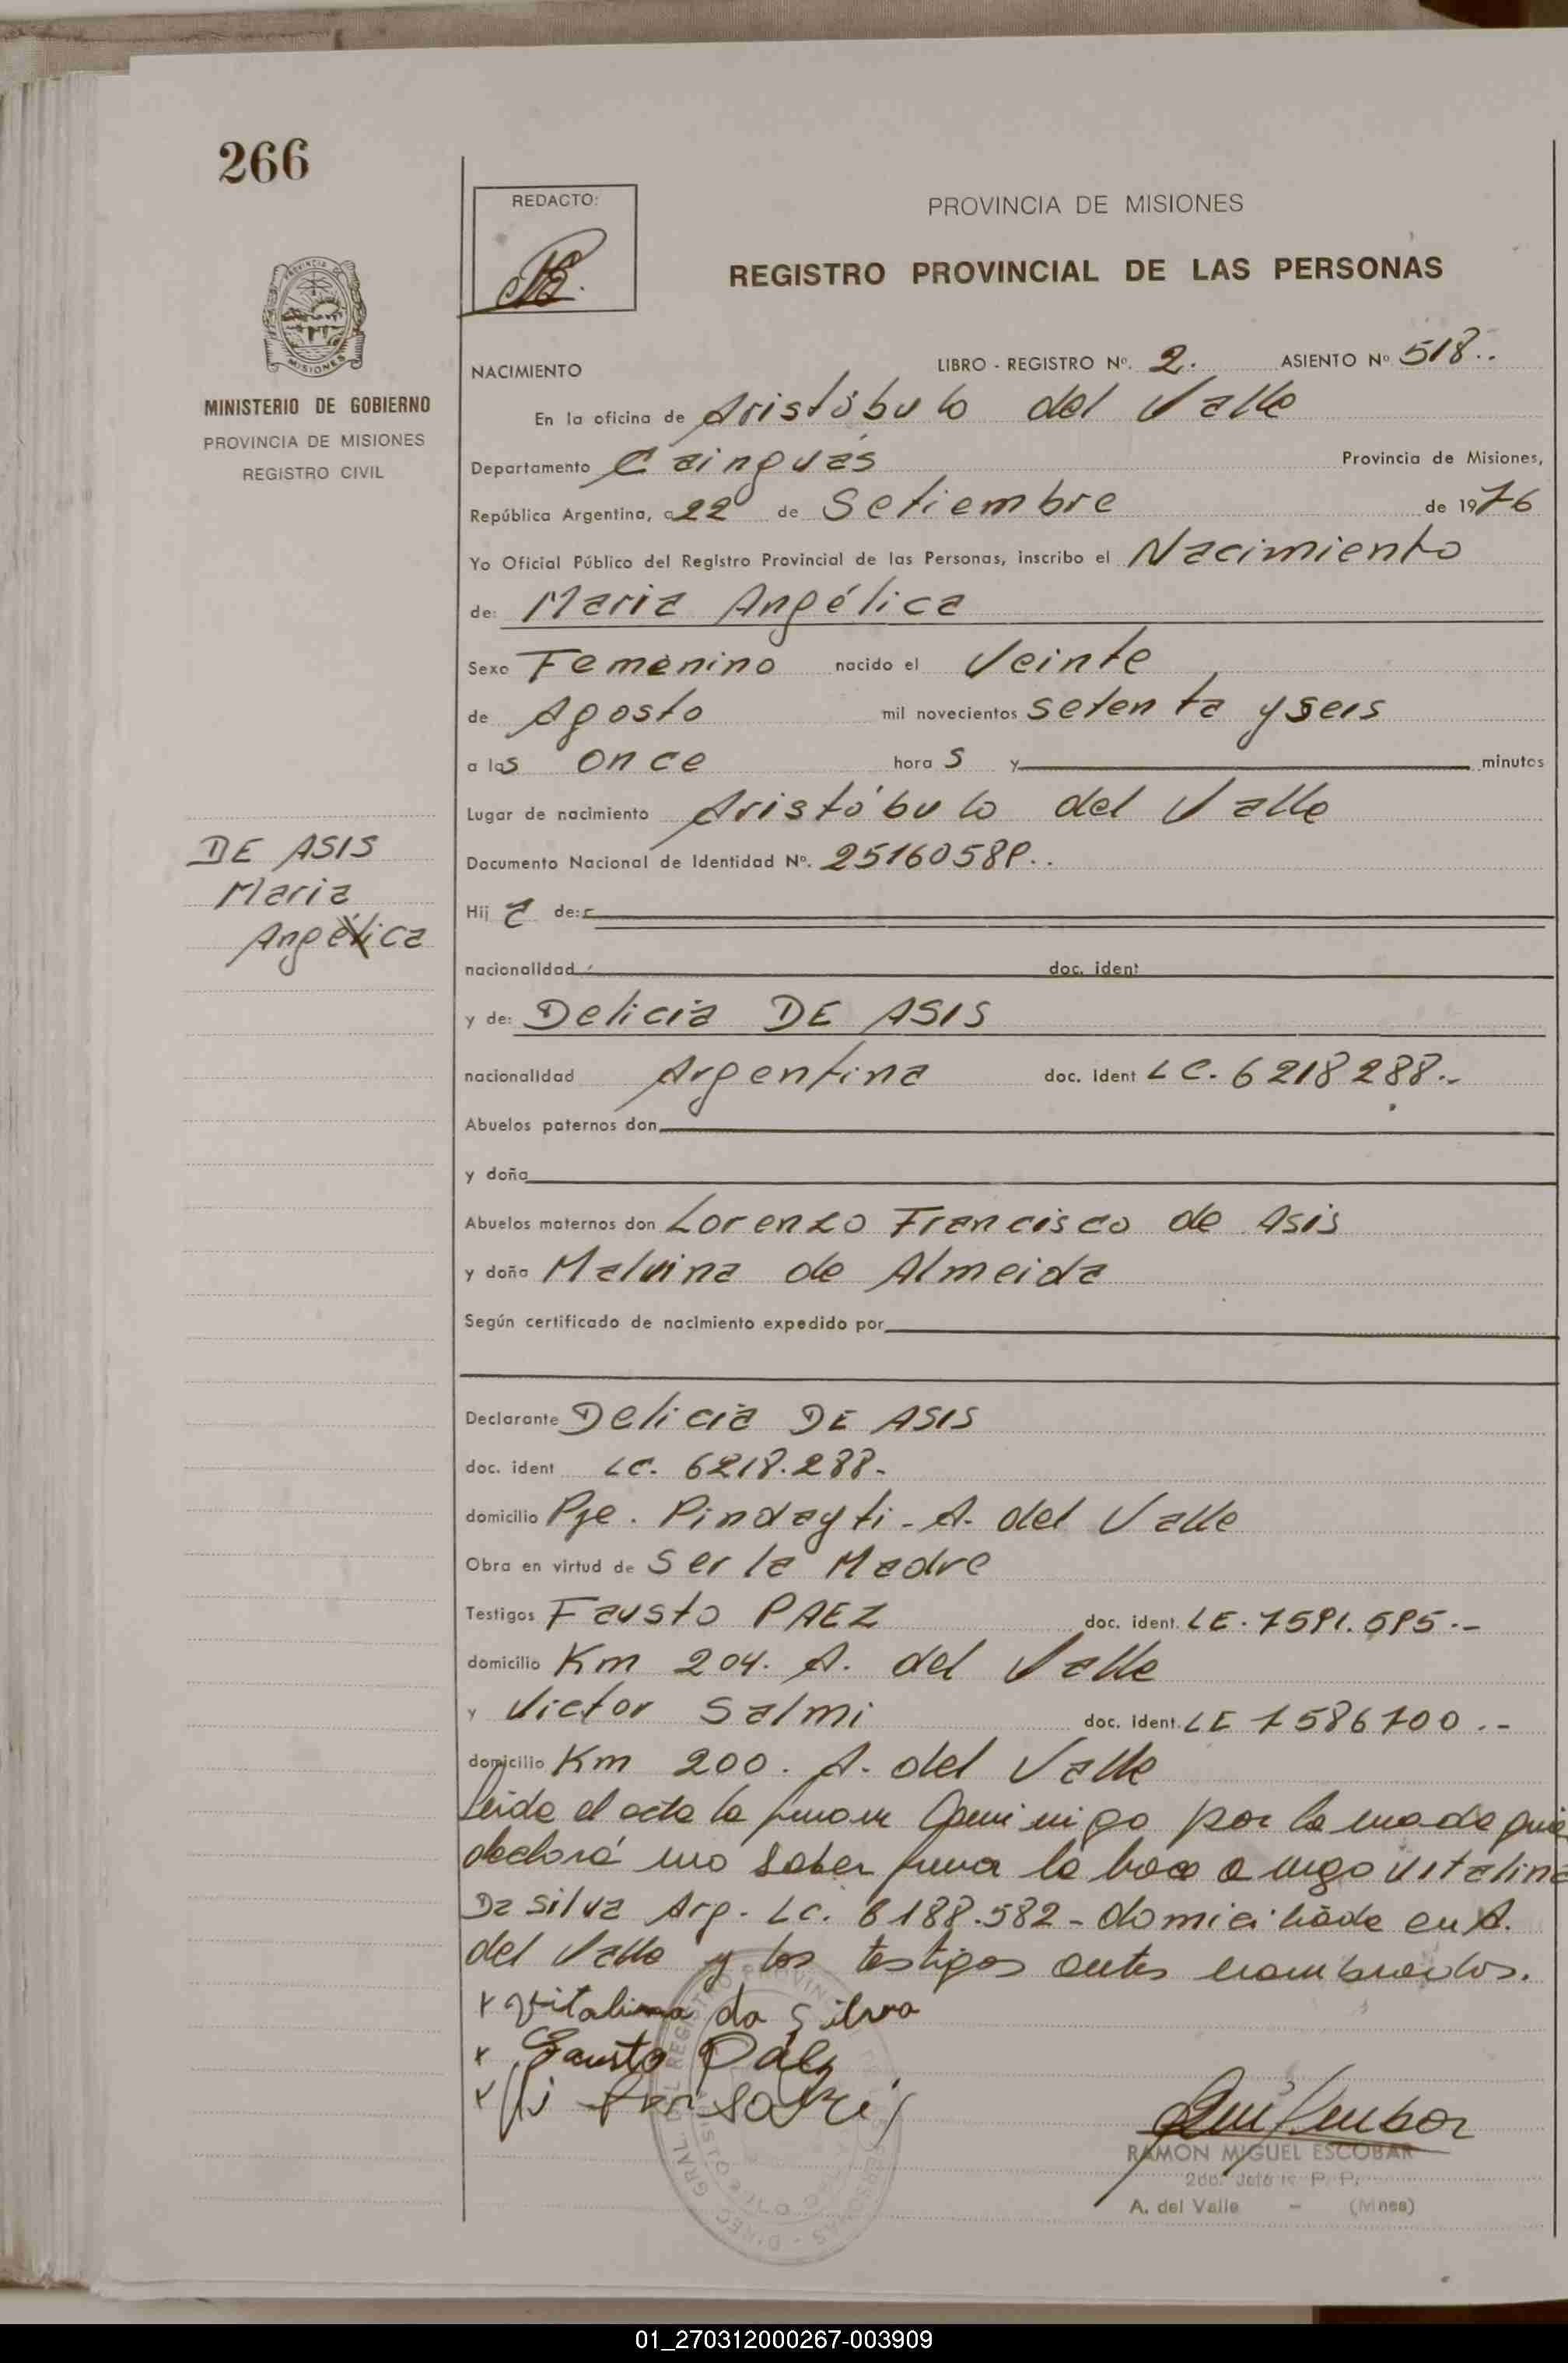 266
REDACTO:
PROVINCIA DE MISIONES
REGISTRO PROVINCIAL DE LAS PERSONAS
PROVINCIA DE
MISIONES
MINISTERIO DE GOBIERNO
PROVINCIA DE MISIONES
REGISTRO CIVIL
NACIMIENTO LIBRO - REGISTRO Nº. 2. ASIENTO Nº 518..
En la oficina de Aristóbulo del Valle
Departamento Cainguás Provincia de Misiones,
República Argentina, a 22 de Setiembre de 1976
Yo Oficial Público del Registro Provincial de las Personas, inscribo el Nacimiento
de: Maria Angélica
Sexo Femenino nacido el Veinte
de Agosto mil novecientos setenta y seis
a las once hora s y minutos
Lugar de nacimiento Aristóbulo del Valle
DE ASIS
Maria
Angélica
Documento Nacional de Identidad Nº. 25160589..
Hij a de:
nacionalidad doc. ident
y de: Delicia DE ASIS
nacionalidad Argentina doc. ident LC. 6218288.-
Abuelos paternos don
y doña
Abuelos maternos don Lorenzo Francisco de Asis
y doña Malvina de Almeida
Según certificado de nacimiento expedido por
Declarante Delicia DE ASIS
doc. ident LC. 6218.288-
domicilio Pje. Pindayti - A. del Valle
Obra en virtud de Ser la Madre
Testigos Fausto PAEZ doc. ident. LE. 7591.595.--
domicilio Km 204. A. del Valle
y Victor Salmi doc. ident. LE 7586700.--
domicilio Km 200. A. del Valle
leida el acta la firman conmigo por la madre quie
declará no saber firmar lo hace a ruego Vitalina
Da Silva Arg. LC. 6188.582 - domiciliada en A.
del Valle y los testigos antes nombrados.
x Vitalina da Silva
x Fausto Páez
x
RAMON MIGUEL ESCOBAR
2do. Jefe R. P. P.
A. del Valle - (Mnes)
01_270312000267-003909